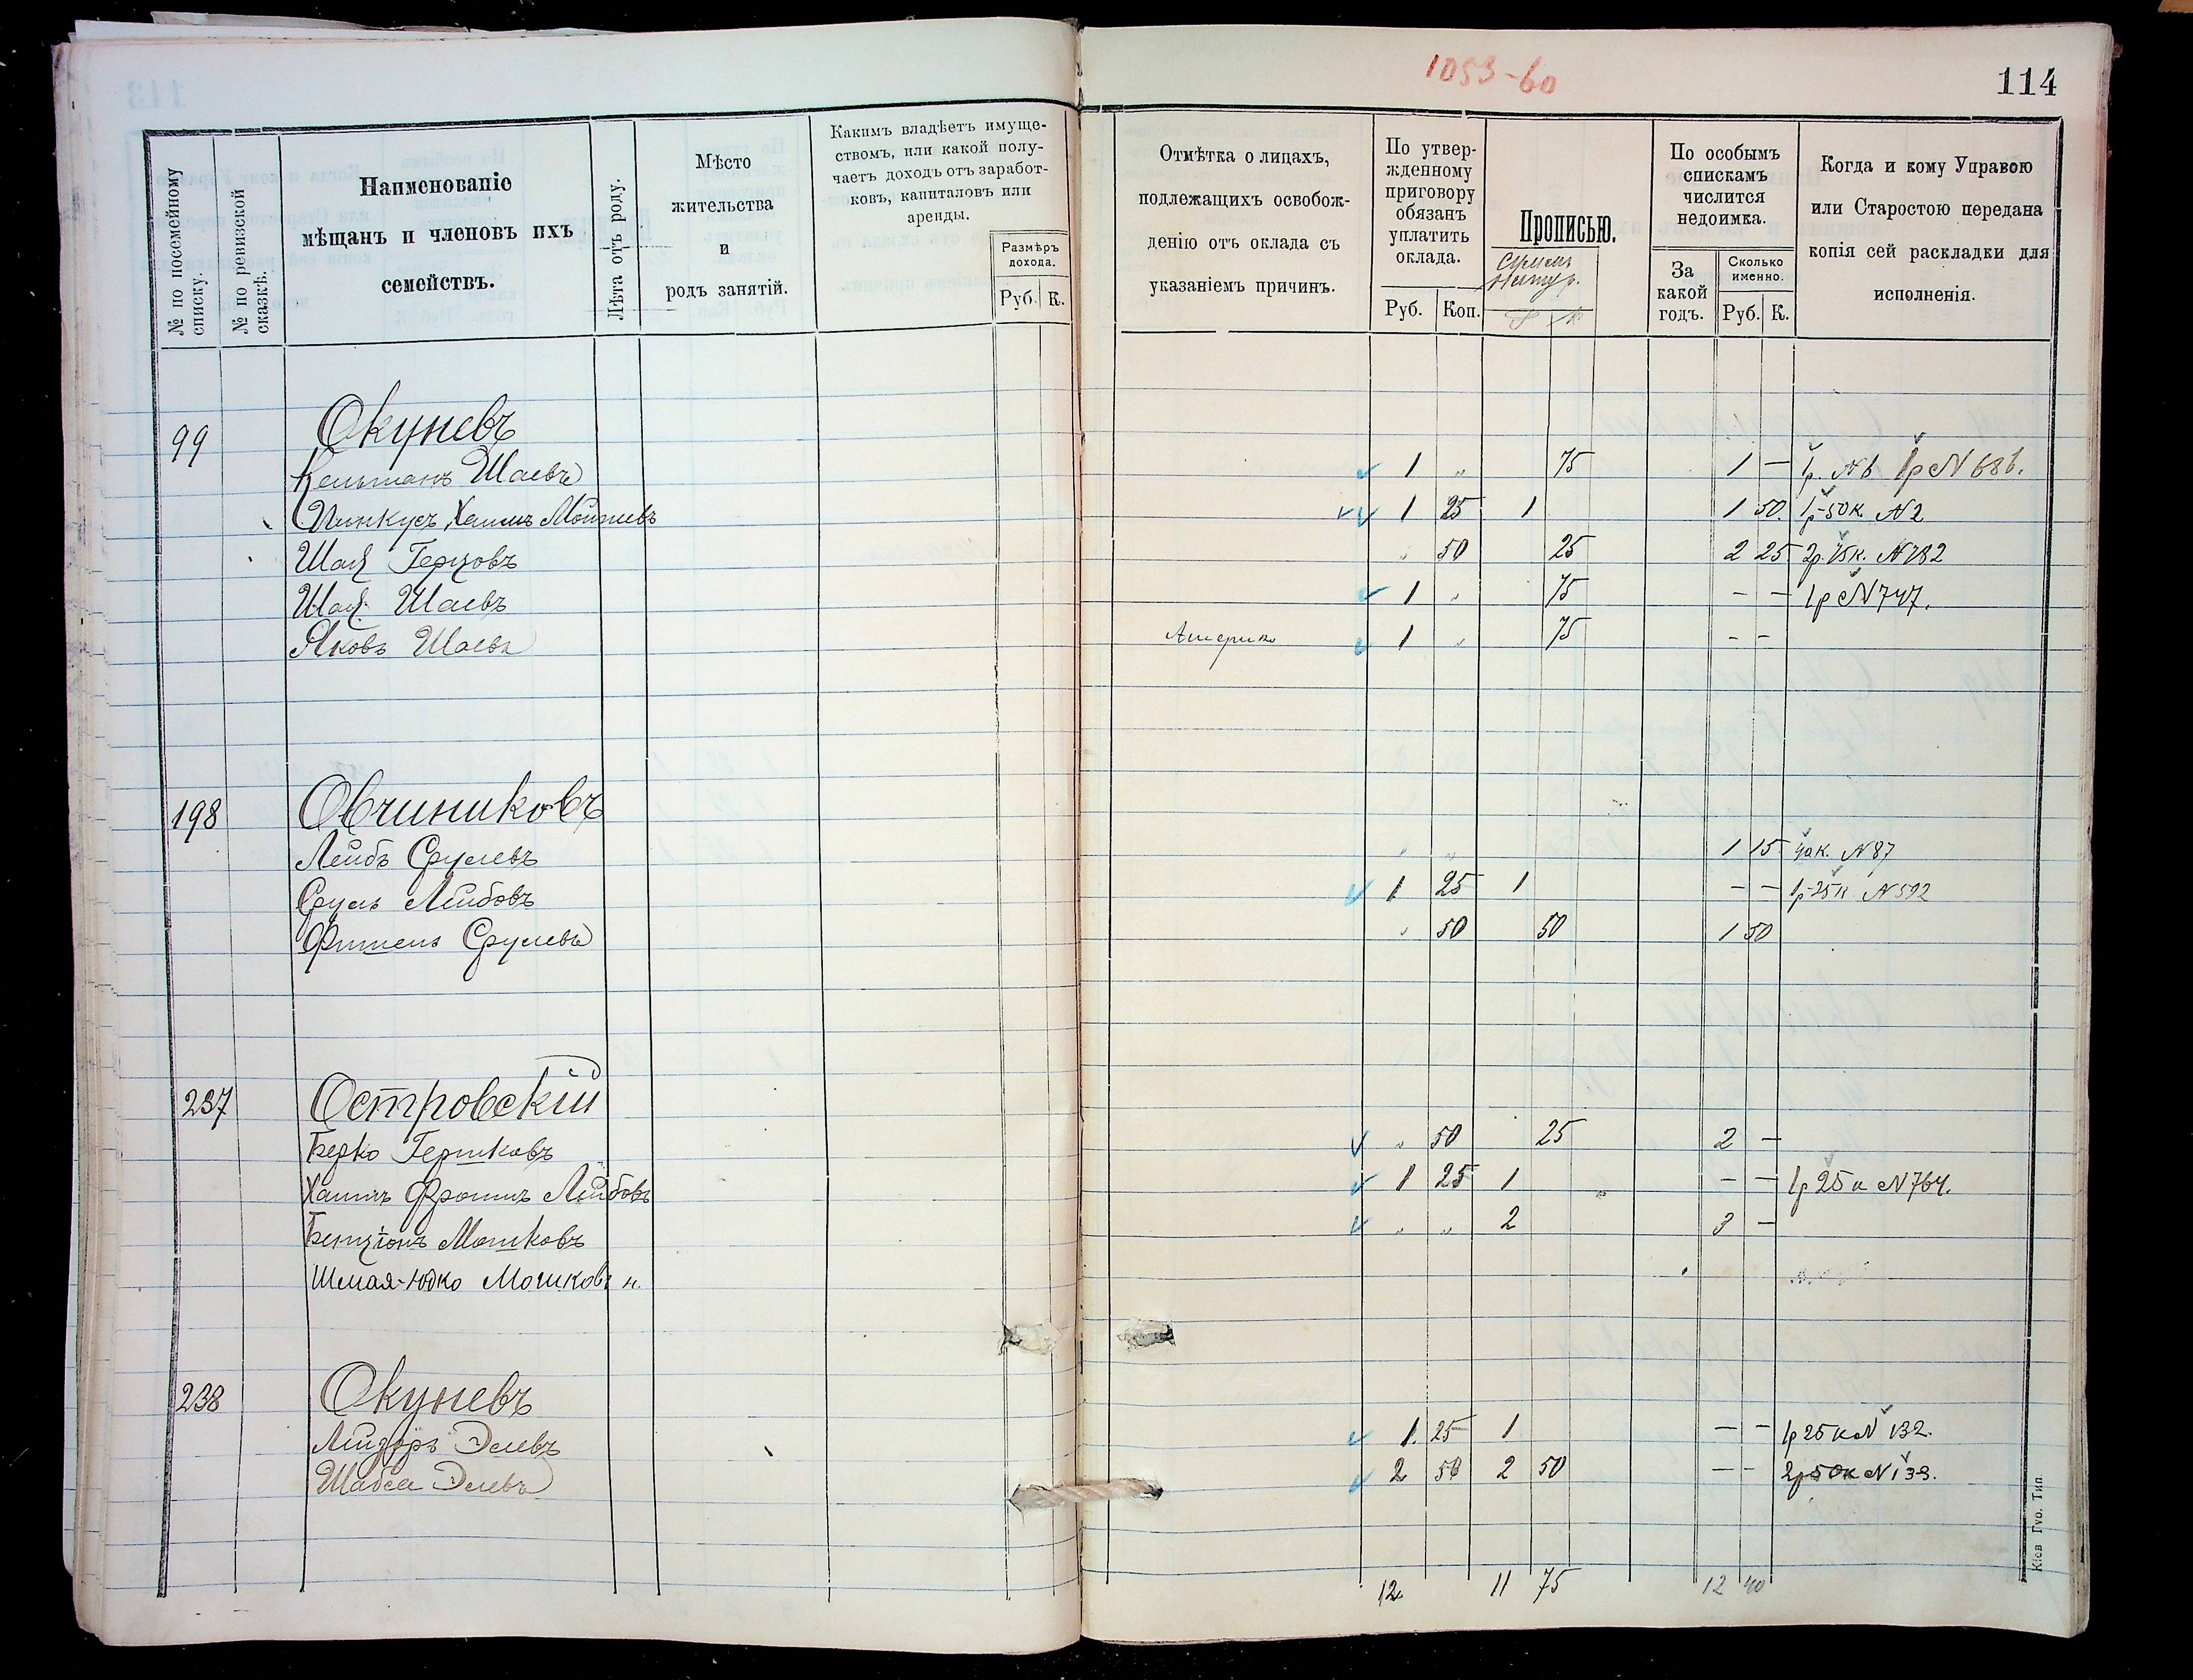 1053-60
114
№ по посемейному списку.
№ по ревизской сказкѣ.
Наименованіе
мѣщанъ и членовъ ихъ
семействъ.
Лѣта отъ роду.
Мѣсто
жительства
и
родъ занятій.
Какимъ владѣетъ имуще-
ствомъ, или какой полу-
чаетъ доходъ отъ заработ-
ковъ, капиталовъ или
аренды.
Размѣръ
дохода.
Руб. К.
Отмѣтка о лицахъ,
подлежащихъ освобож-
денію отъ оклада съ
указаніемъ причинъ.
По утвер-
жденному
приговору
обязанъ
уплатить
оклада.
Руб. Коп.
Прописью.
По особымъ
спискамъ
числится
недоимка.
За
какой
годъ.
Сколько
именно.
Руб. К.
Когда и кому Управою
или Старостою передана
копія сей раскладки для
исполненія.
99 Окуневъ
Кельманъ Шаевъ 1 „ 75 1 — 1р. №6 1р №686.
Пинкусъ Хаимъ Мошиевъ 1 25 1 1 50. 1р-50к. №2
Шая Герцовъ „ 50 25 2 25 2р.75к. №782
Шая Шаевъ 1 „ 75 — — 1р №747.
Яковъ Шаевъ Америка 1 „ 75 — —
198 Овчиниковъ
Лейбъ Срулевъ „ „ 1 15 №87
Сруль Лейбовъ 1 25 1 — — 1р-25к №592
Фишель Срулевъ „ 50 50 1 50
237 Островскій
Берко Гершковъ „ 50 25 2 —
Хаимъ Фроимъ Лейбовъ 1 25 1 — — 1р 25к №764.
Бенціонъ Мошковъ „ „ 2 3 —
Шмая-Юдко Мошковъ н.
238 Окуневъ
Лейзоръ Элевъ 1. 25 1 — — 1р 25к № 132.
Шабса Элевъ 2 50 2 50 — — 2р50к №133.
12 11 75 12 40
Кіев Губ. Тип.